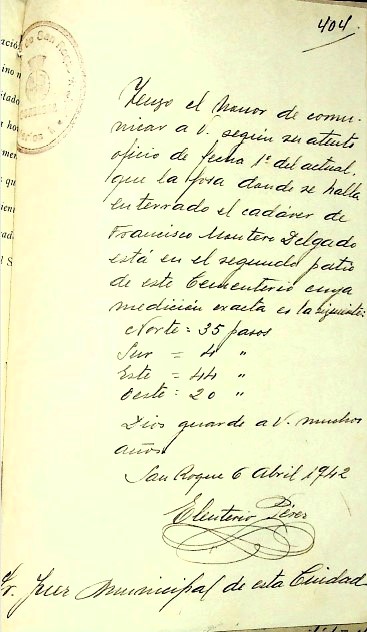 404
Tengo el honor de comu-
nicar a V. según su atento
oficio de fecha 1º del actual,
que la fosa donde se halla
enterrado el cadáver de
Francisco Montero Delgado
está en el segundo patio
de este Cementerio cuya
medición exacta es la siguiente:
Norte = 35 pasos
Sur = 4 "
Este = 44 "
Oeste = 20 "
Dios guarde a V. muchos
años.
San Roque 6 Abril 1942
Eleuterio Pérez
Sr. Juez Municipal de esta Ciudad